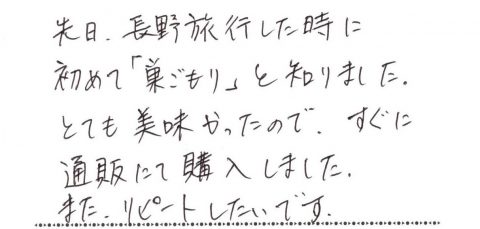 先日、長野旅行した時に
初めて「巣ごもり」と知りました。
とても美味かったので、すぐに
通販にて購入しました。
また、リピートしたいです。